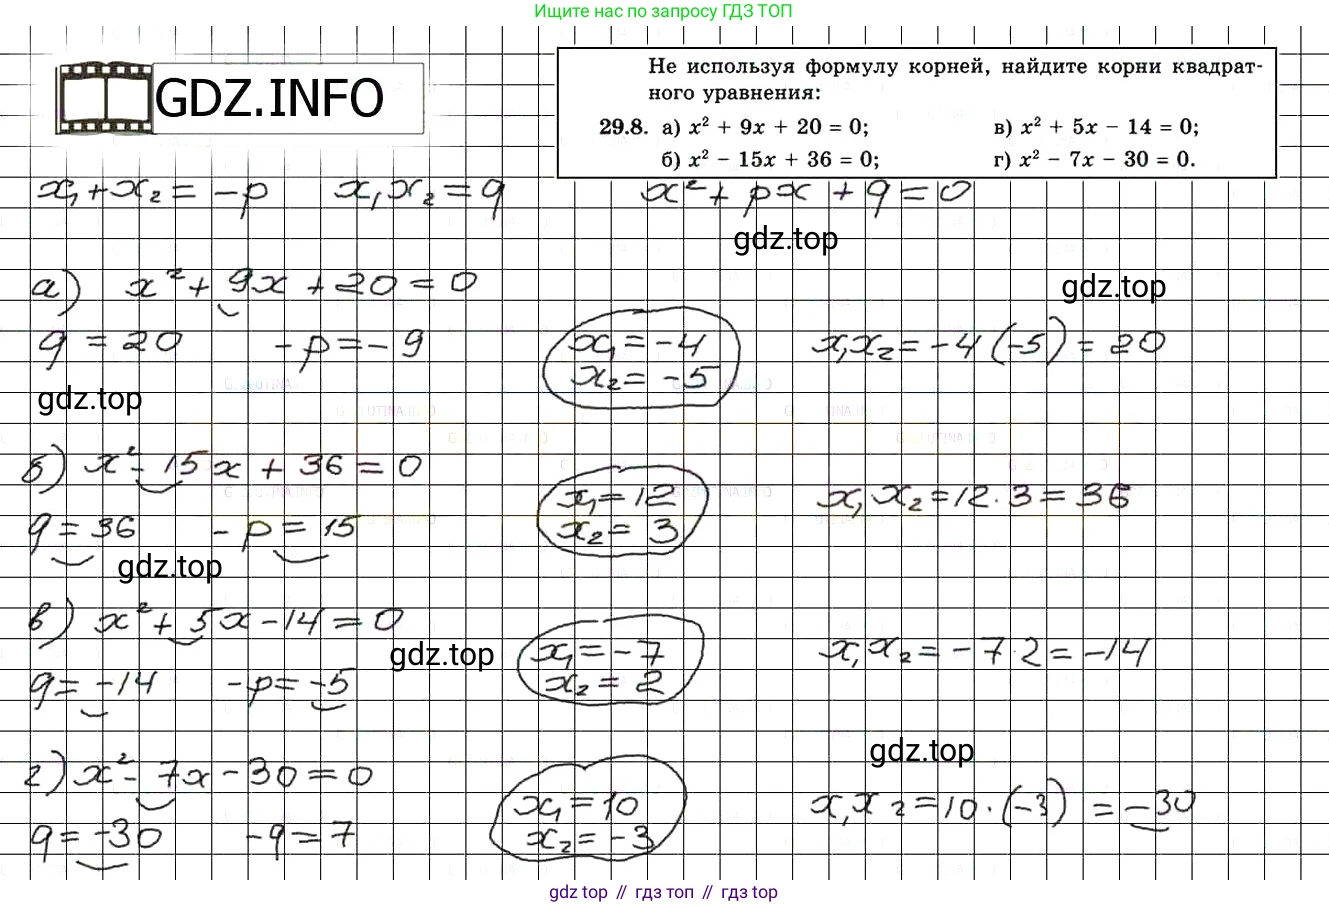 Ищите нас по запросу ГДЗ ТОП
GDZ.INFO
Не используя формулу корней, найдите корни квадрат-
ного уравнения:
29.8. а) x² + 9x + 20 = 0; в) x² + 5x − 14 = 0;
б) x² − 15x + 36 = 0; г) x² − 7x − 30 = 0.
x₁ + x₂ = −p x₁x₂ = q x² + px + q = 0
gdz.top
gdz.top
а) x² + 9x + 20 = 0
q = 20 −p = −9 x₁ = −4 x₁x₂ = −4(−5) = 20
x₂ = −5
gdz.top
б) x² − 15x + 36 = 0
x₁ = 12 x₁x₂ = 12·3 = 36
q = 36 −p = 15 x₂ = 3
gdz.top
в) x² + 5x − 14 = 0
gdz.top x₁ = −7 x₁x₂ = −7·2 = −14
q = −14 −p = −5 x₂ = 2
gdz.top
г) x² − 7x − 30 = 0
x₁ = 10 x₁x₂ = 10·(−3) = −30
q = −30 −q = 7 x₂ = −3
gdz top // гдз топ // гдз top